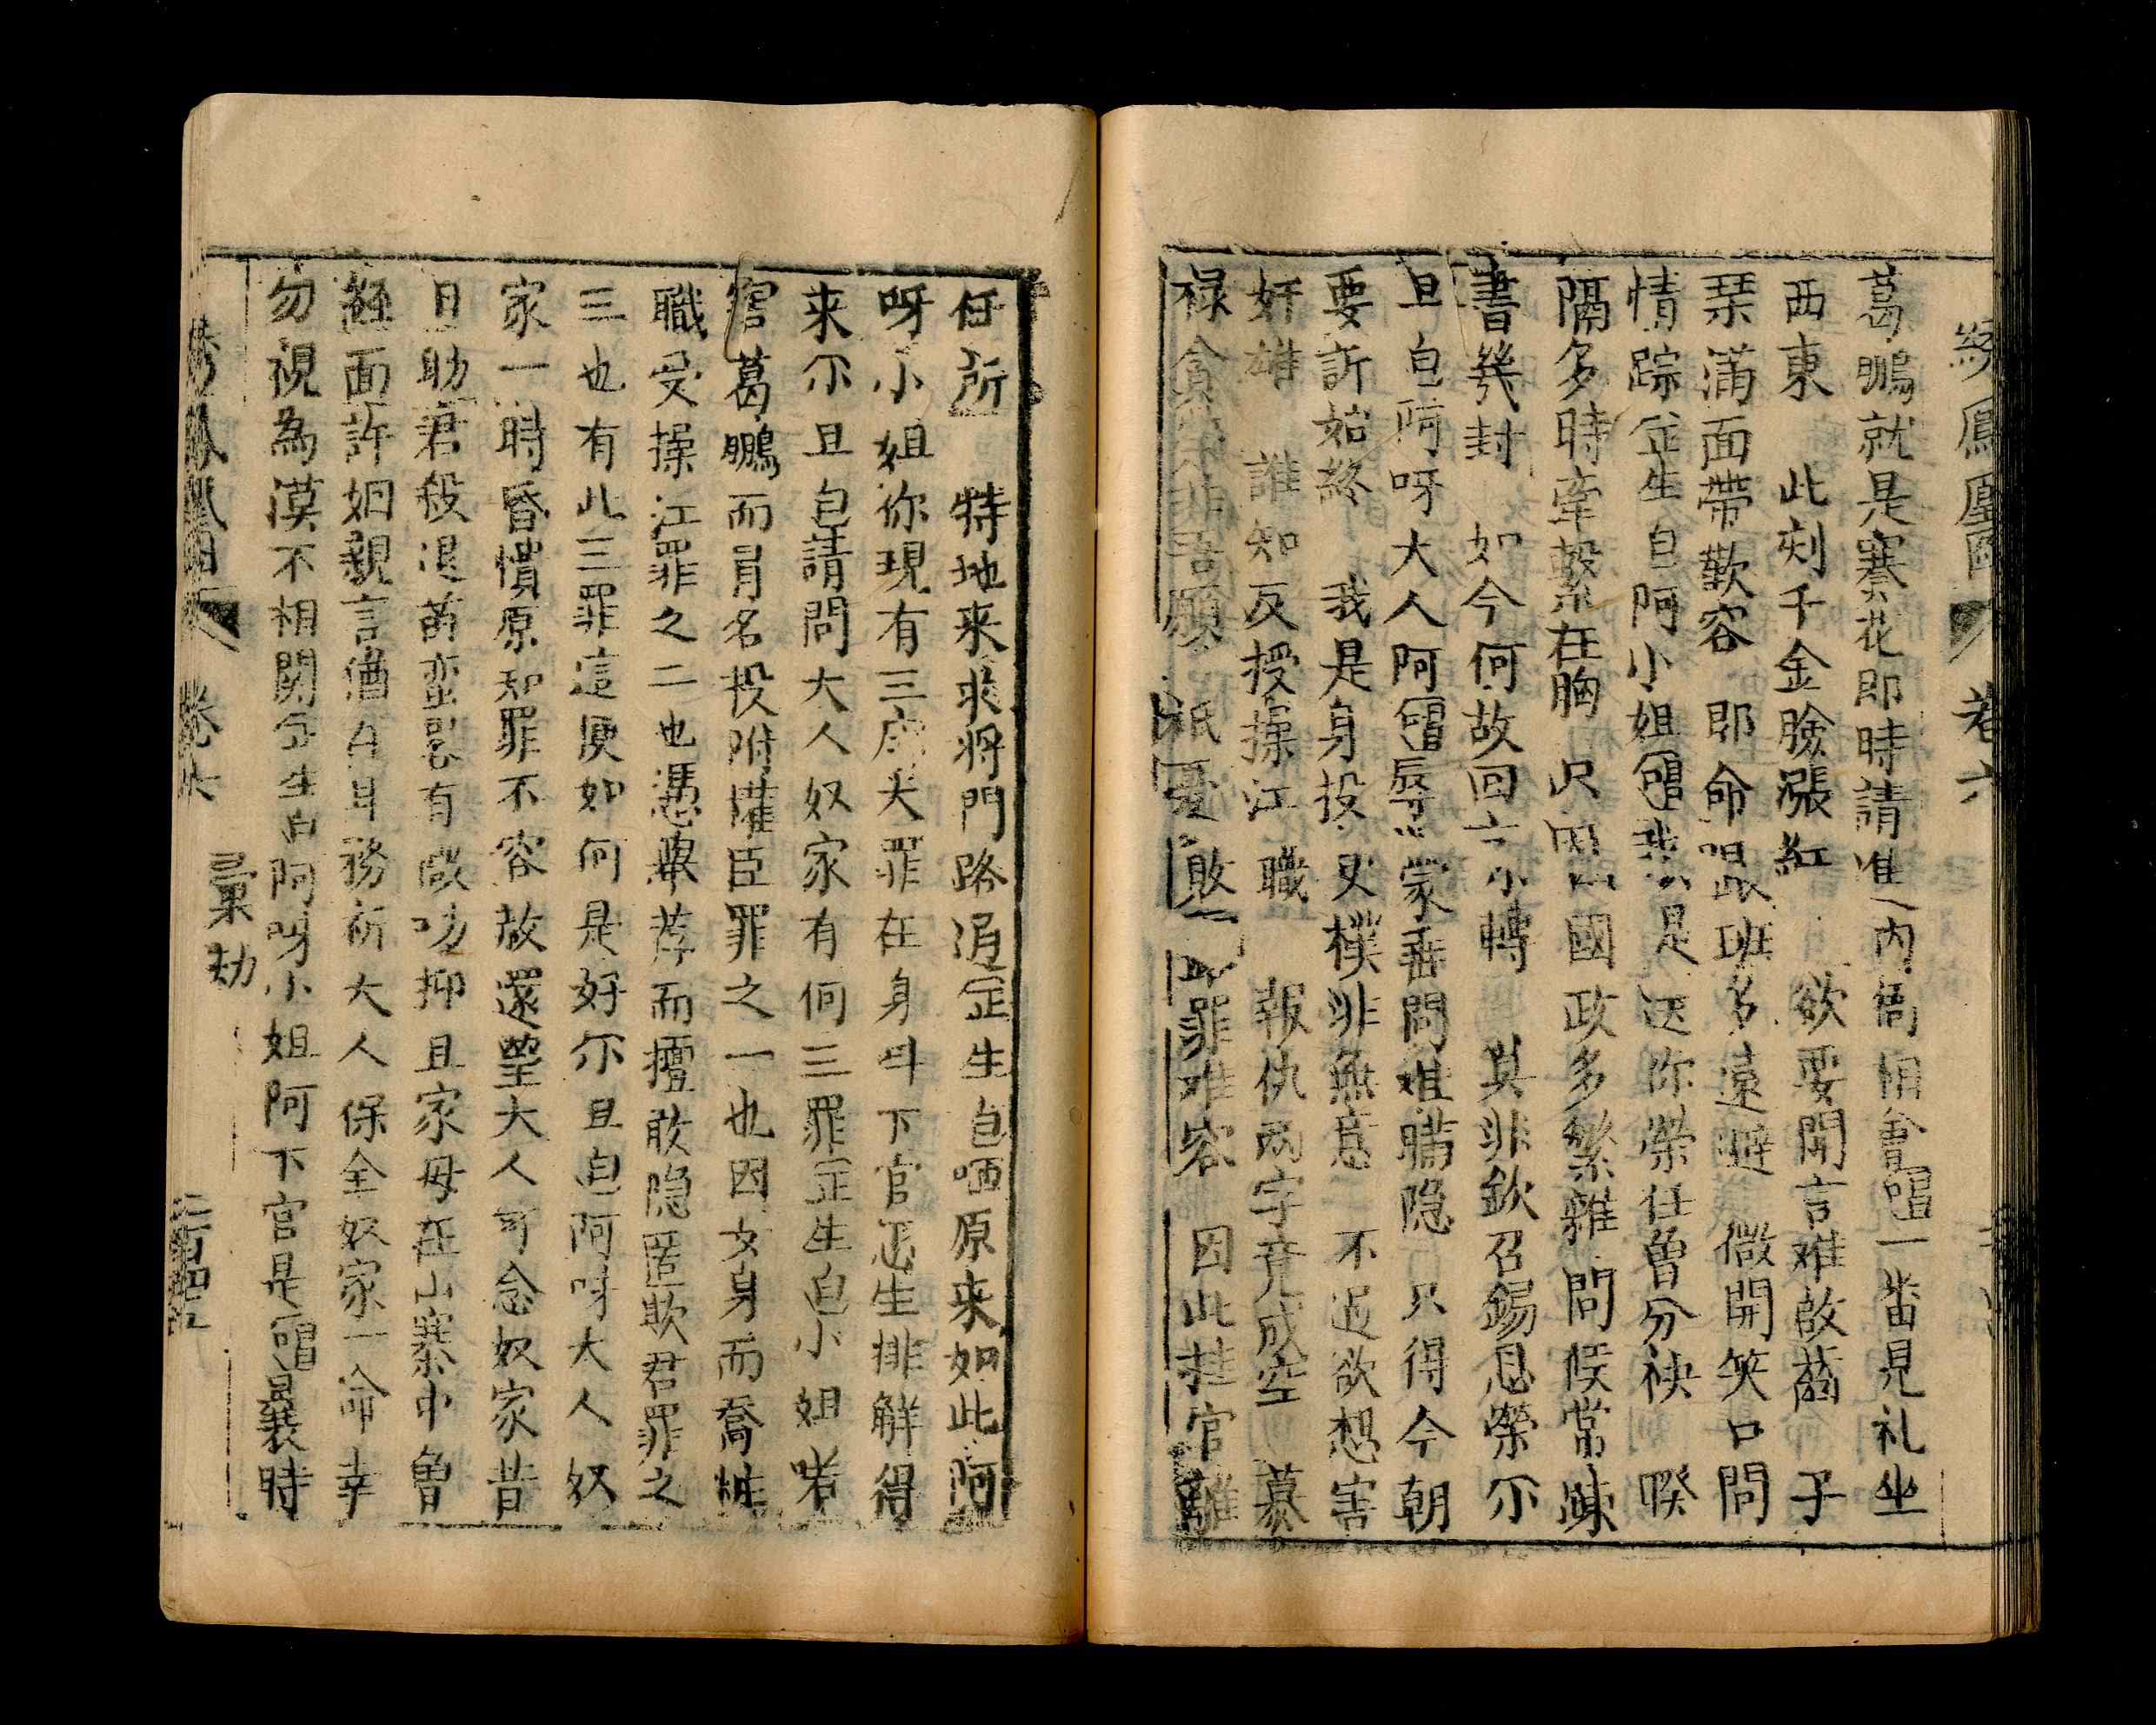 繡鳳凰圖 卷六
葛鵬就是賽花即時請進內衙相會唱一番見礼坐
西東 此刻千金臉漲紅 欲要開言难啟齒 子
琹滿面帶歡容 即命跟班多遠避 微開笑口問
情踪㱏生白阿小姐唱我是送你榮任曽分袂 暌
隔多時牽繫在胸 只因國政多繁雜 問候常疎
書幾封 如今何故回京轉 莫非欽召錫恩榮尒
旦白阿呀大人阿唱辱蒙垂問难瞞隐 只得今朝
要訴始終 我是身投火撲非無意 不过欲想害
奸雄 誰知反授操江職 報仇两字竟成空 慕
禄貪非吾願 祇憂欺罪难容 因此挂官離
任所 特地来求將門路通㱏生白哂原来如此阿
呀小姐你現有三大罪在身叫下官怎生排觧得
来尒旦白請問大人奴家有何三罪㱏生白小姐喏
窖葛鵬而冐名投附權臣罪之一也因女身而喬粧
職受操江罪之二也憑舉荐而擅敢隐匿欺君罪之
三也有此三罪這便如何是好尒旦白阿呀大人奴
家一時昏憒原知罪不容赦還望大人可念奴家昔
日助君殺退苗蛮畧有微功抑且家母在山寨中曽
經面許姻親言猶在耳務祈大人保全奴家一命幸
勿視為漠不相関㱏生白阿呀小姐阿下官是唱曩時
卷六